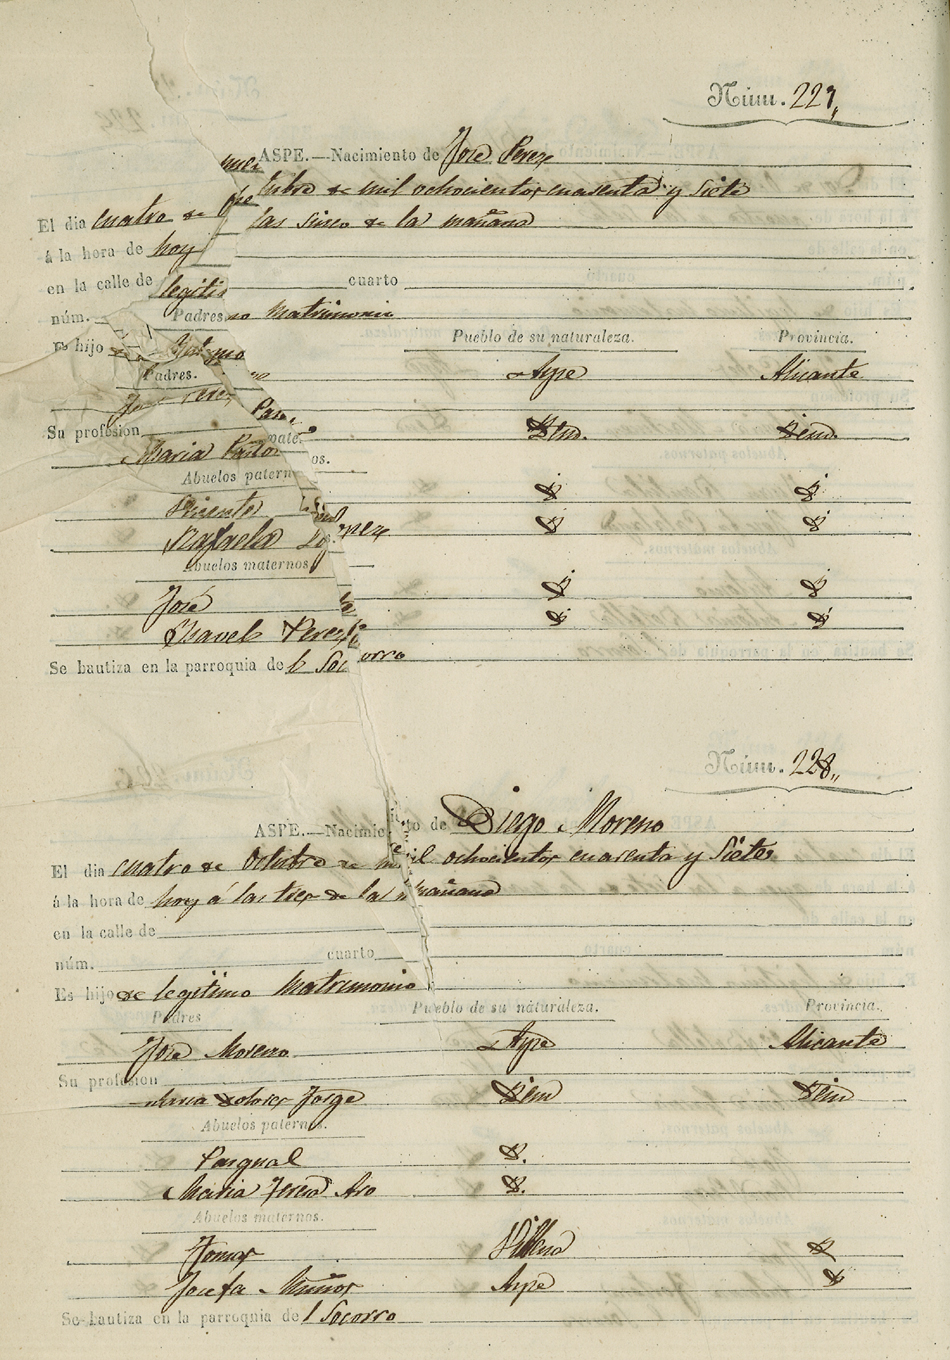 Núm. 227,,
ASPE.—Nacimiento de José Perez
El dia cuatro de tubre de mil ochocientos cuarenta y siete
á la hora de hoy las sinco de la mañana
en la calle de
núm. cuarto
Es hijo legiti mo Matrimonio
Padres. Pueblo de su naturaleza. Provincia.
Perez Aspe Alicante
Su profesion
Maria Pastor Idem. Idem.
Abuelos paternos.
Vicente Id
Rafaela Id
Abuelos maternos
José Id
Ysavel Perez Id
Se bautiza en la parroquia de l Socorro
Núm. 228,,
ASPE.—Nacimiento de Diego Moreno
El dia cuatro de Octubre de mil ochocientos cuarenta y Siete
á la hora de hoy á las tres de la mañana
en la calle de
núm. cuarto
Es hijo de legitimo Matrimonio
Padres Pueblo de su naturaleza. Provincia.
José Moreno Aspe Alicante
Su profesion
Maria Dolores Jorge Idem Idem
Abuelos paternos.
Pasqual
Maria Teresa Aro
Abuelos maternos.
Tomas Villena
Josefa Muños Aspe
Se bautiza en la parroquia de l Socorro